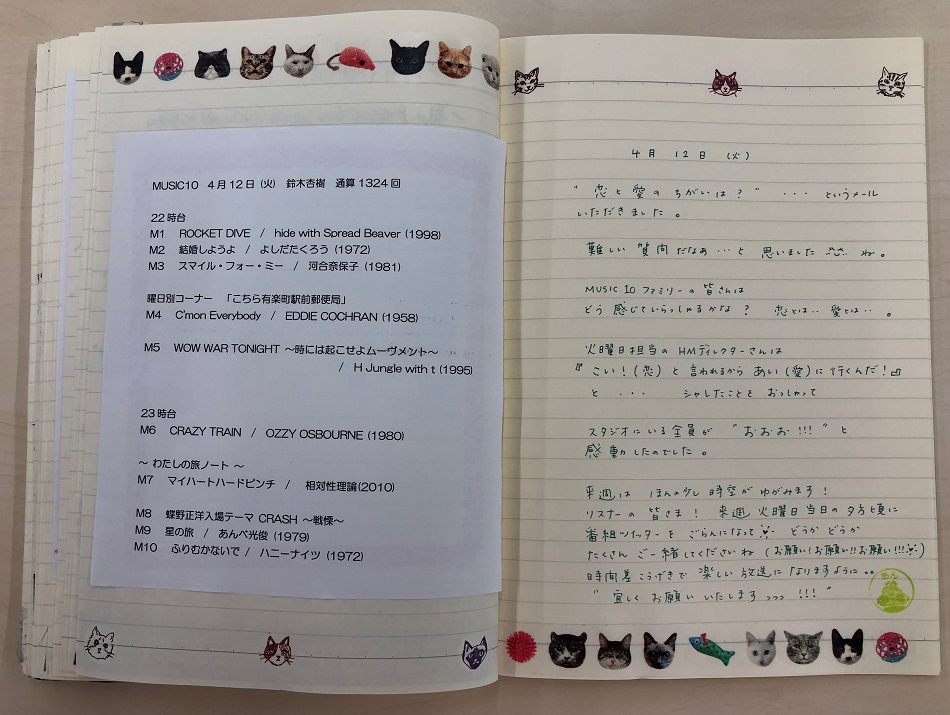 MUSIC10 4月12日(火) 鈴木杏樹 通算1324回
22時台
M1 ROCKET DIVE / hide with Spread Beaver (1998)
M2 結婚しようよ / よしだたくろう (1972)
M3 スマイル・フォー・ミー / 河合奈保子 (1981)
曜日別コーナー 「こちら有楽町駅前郵便局」
M4 C'mon Everybody / EDDIE COCHRAN (1958)
M5 WOW WAR TONIGHT ～時には起こせよムーヴメント～
/ H Jungle with t (1995)
23時台
M6 CRAZY TRAIN / OZZY OSBOURNE (1980)
～ わたしの旅ノート ～
M7 マイハートハードピンチ / 相対性理論(2010)
M8 蝶野正洋入場テーマ CRASH ～戦慄～
M9 星の旅 / あんべ光俊 (1979)
M10 ふりむかないで / ハニーナイツ (1972)
4月 12日 (火)
"恋と愛のちがいは?" ... というメール
いただきました。
難しい質問だなぁ...と 思いました ね。
MUSIC10ファミリーの皆さんは
どう感じていらっしゃるかな? 恋とは.. 愛とは..。
火曜日担当のHMディレクターさんは
『こい!(恋)と言われるから あい(愛)に行くんだ!』
と ... シャレたことを おっしゃって
スタジオにいる全員が "おぉお!!!"と
感動したのでした。
来週は ほんの少し 時空が ゆがみます!
リスナーの 皆さま! 来週 火曜日当日の夕方頃に
番組ツイッターを ごらんになって どうか どうか
たくさん ご一緒してくださいね (お願い!お願い!!お願い!!!)
時間差こうげきで 楽しい放送に なりますように..
"宜しく お願い いたしますっっっ!!!"
あん